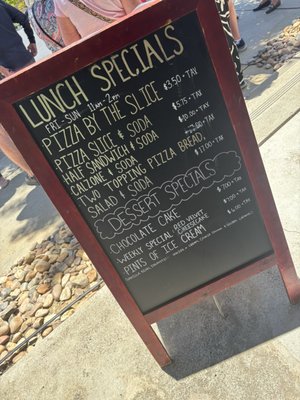 LUNCH SPECIALS
FRI.-SUN. 11AM-2PM
PIZZA BY THE SLICE $3.50 +TAX
PIZZA SLICE & SODA $5.75 +TAX
HALF SANDWICH & SODA $10.00 +TAX
CALZONE & SODA
TWO TOPPING PIZZA BREAD,
SALAD & SODA $13.00 +TAX
DESSERT SPECIALS
CHOCOLATE CAKE $7.00 +TAX
WEEKLY SPECIAL RED VELVET CHEESECAKE +TAX
PINTS OF ICE CREAM +TAX